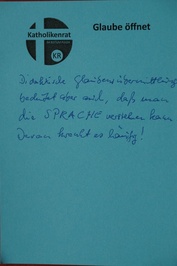 Katholikenrat
KR
Glaube öffnet
Didaktische Glaubensübermittlung
bedeutet aber auch, daß man
die SPRACHE verstehen kann
Daran krankt es häufig!